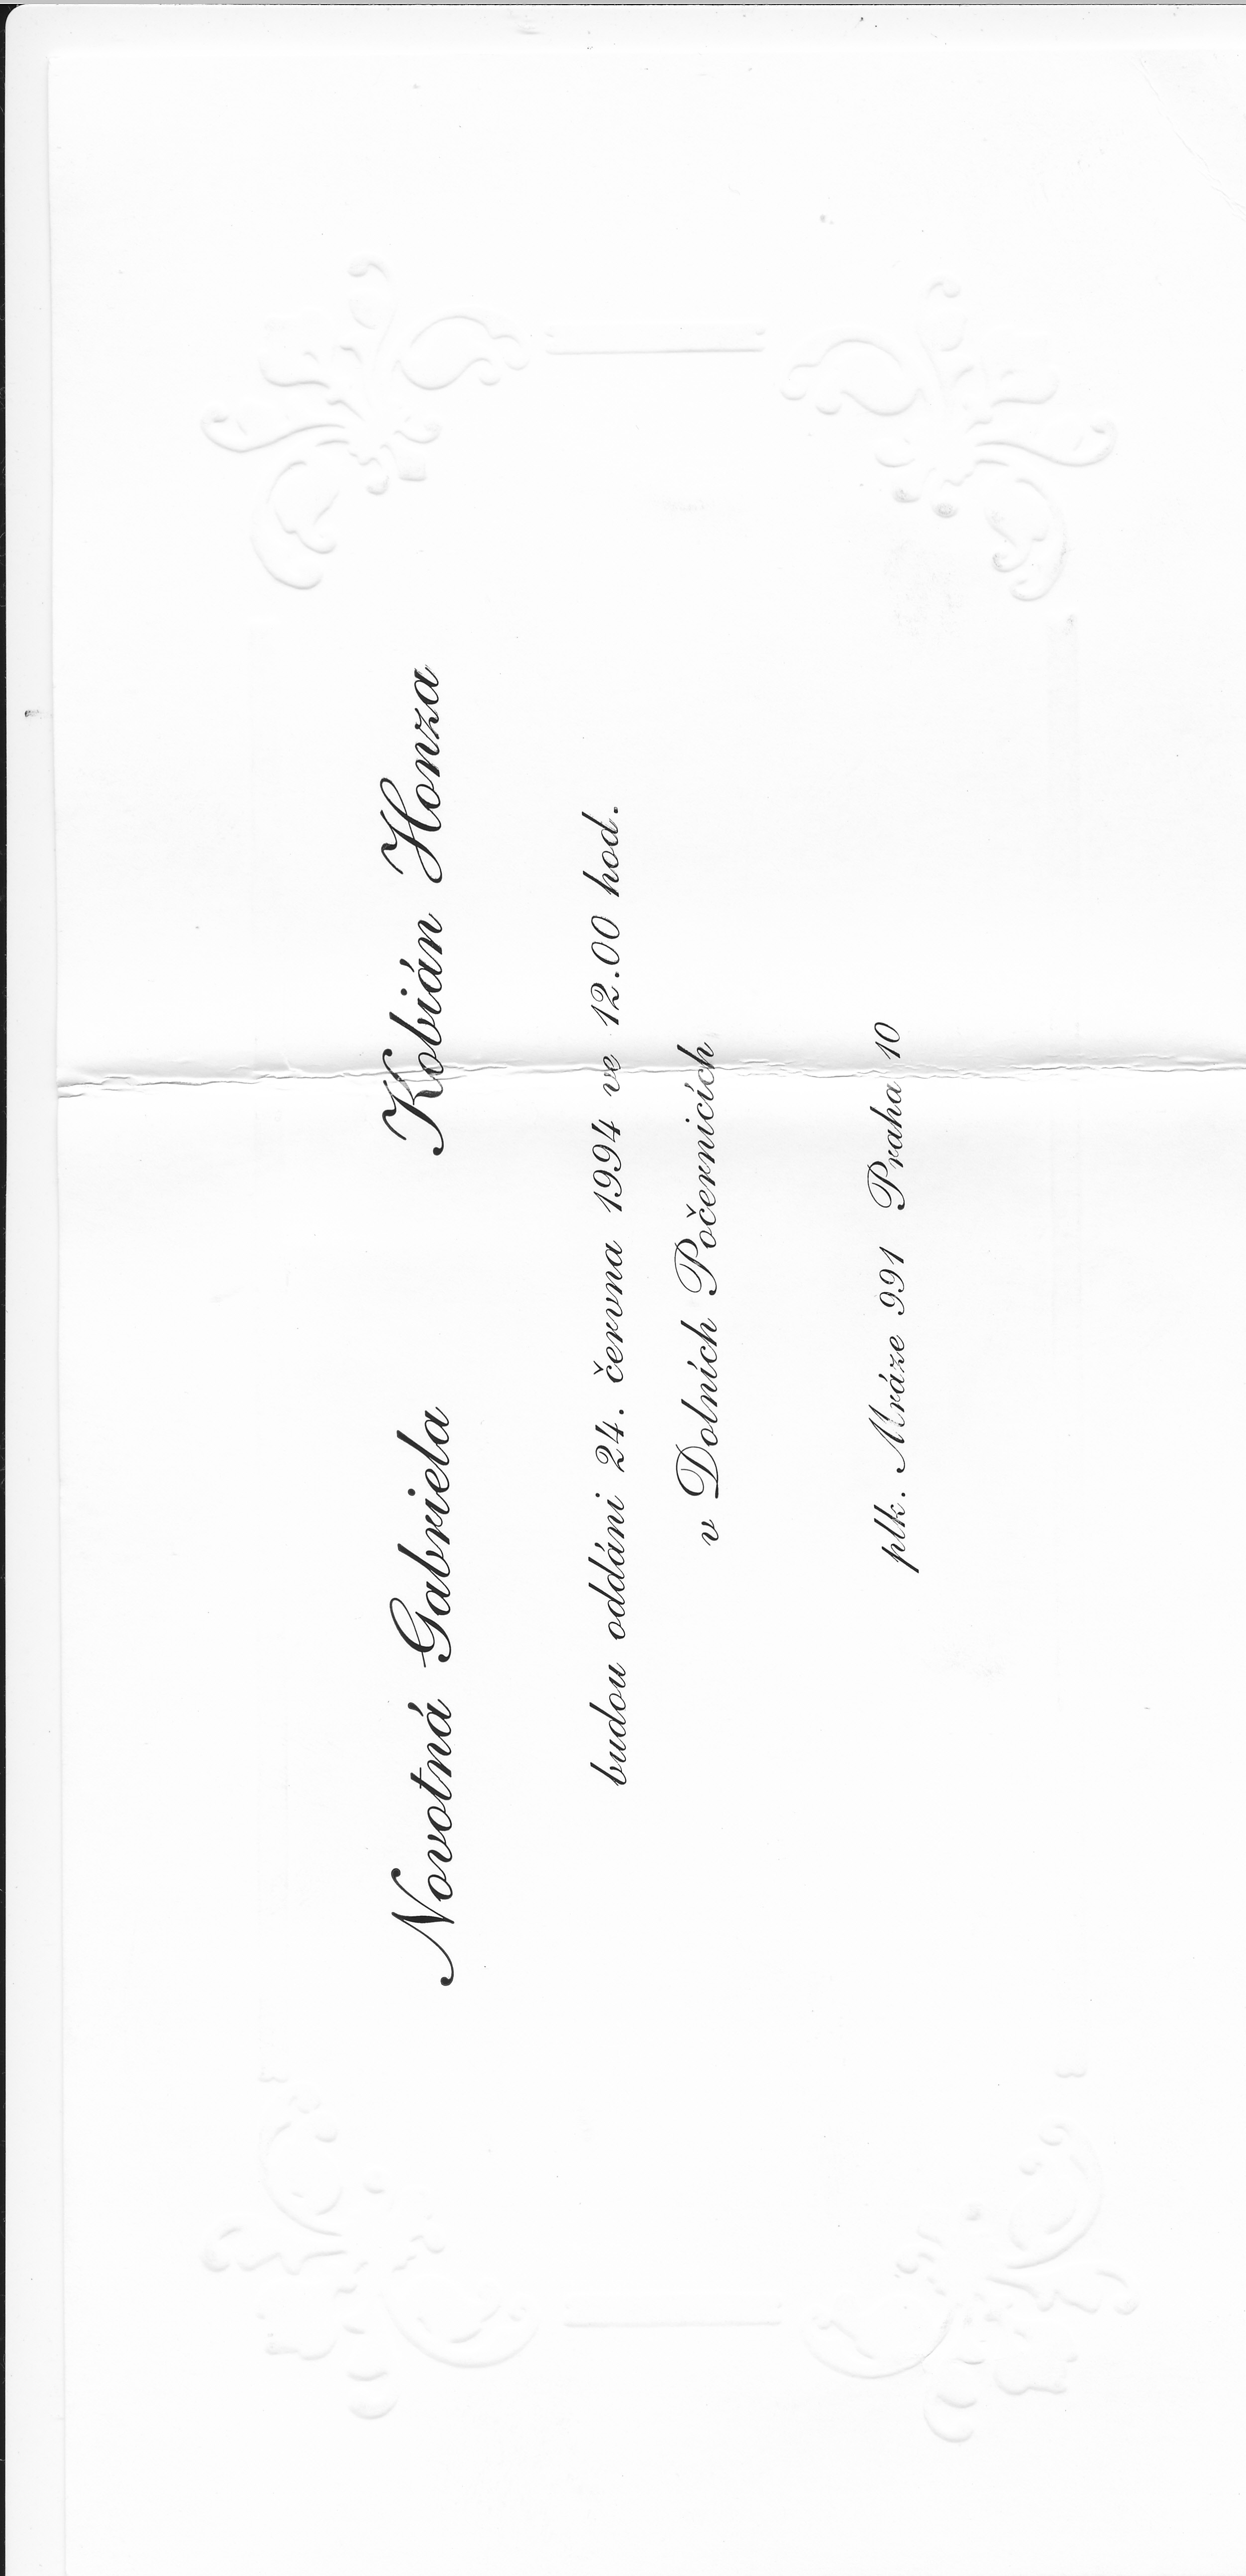 Novotná Gabriela Kobián Honza
budou oddáni 24. června 1994 ve 12.00 hod.
v Dolních Počernicích
plk. Mráze 991 Praha 10